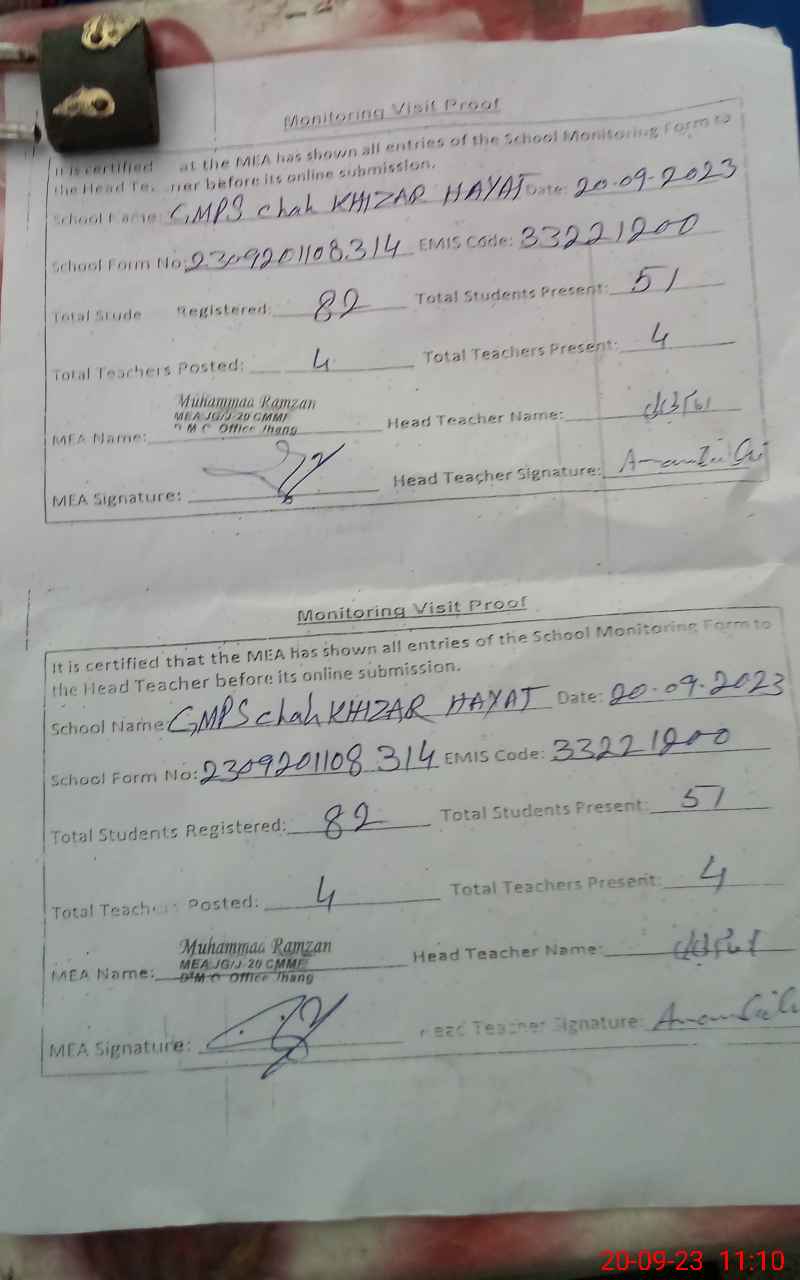 Monitoring Visit Proof
It is certified at the MEA has shown all entries of the School Monitoring Form to
the Head before its online submission.
School Name: GMPS chah KHIZAR HAYAT Date: 20.09.2023
School Form No: 2309201108314 EMIS Code: 33221200
Total Stude Registered: 82 Total Students Present: 51
Total Teachers Posted: 4 Total Teachers Present: 4
Muhammad Ramzan
MEA JG/J-20 CMMF
D M O Office Jhang
MEA Name: Head Teacher Name:
MEA Signature: Head Teacher Signature:
Monitoring Visit Proof
It is certified that the MEA has shown all entries of the School Monitoring Form to
the Head Teacher before its online submission.
School Name: GMPS chah KHIZAR HAYAT Date: 20.09.2023
School Form No: 2309201108314 EMIS Code: 33221200
Total Students Registered: 82 Total Students Present: 51
Total Teachers Posted: 4 Total Teachers Present: 4
Muhammad Ramzan
MEA JG/J-20 CMMF
D M O Office Jhang
MEA Name: Head Teacher Name:
MEA Signature: Head Teacher Signature:
20-09-23 11:10